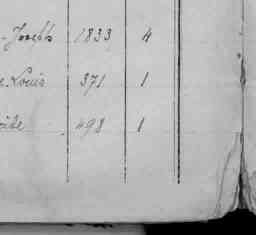 - Joseph 1833 4
Louis 371 1
498 1